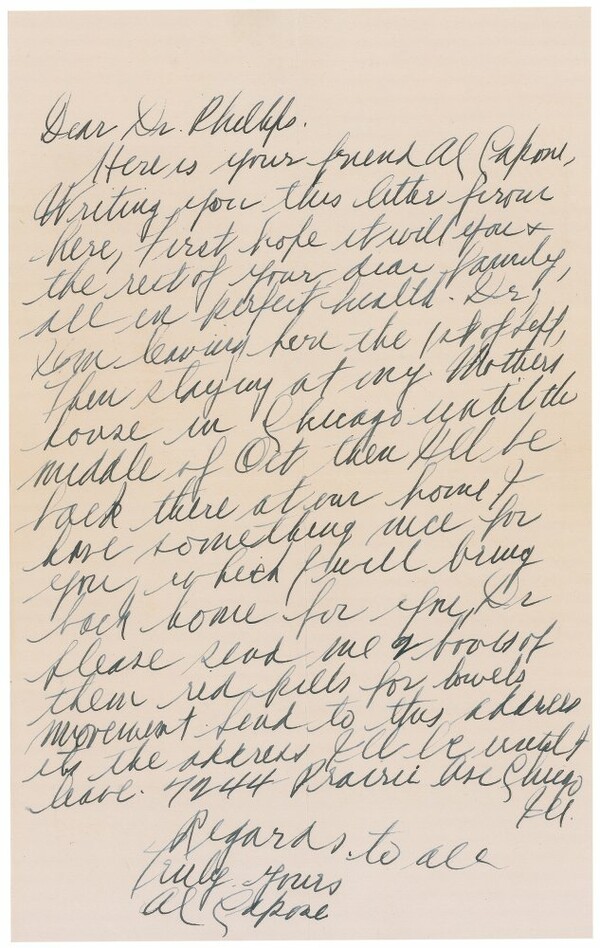 Dear Dr. Phillips.
Here is your friend Al Capone,
Writing you this letter from
here, First hope it will you &
the rest of your dear family,
all in perfect health. Dr,
I'm leaving here the 1st of Sept,
then staying at my Mothers
house in Chicago until the
middle of Oct then I'll be
back there at our home, I
have something nice for
you, which I will bring
back home for you, Dr
please send me 2 boxes of
them red pills for bowels
movement send to this address
its the address I'll be until I
leave. 7244 Prairie Ave Chicago
Ill.
Regards to all
Truly yours
Al Capone